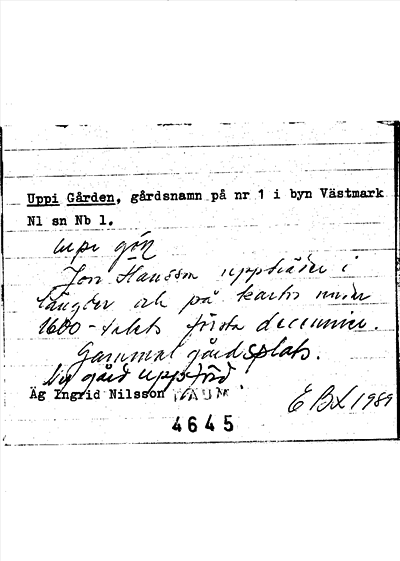 Uppi Gården, gårdsnamn på nr 1 i byn Västmark
Nl sn Nb l.
upi
Jon Hansson uppträder i
längder och på karta under
1600-talets första decennier.
Gammal gårdsplats.
Ny gård uppförd
Äg Ingrid Nilsson
E BL 1989
4645